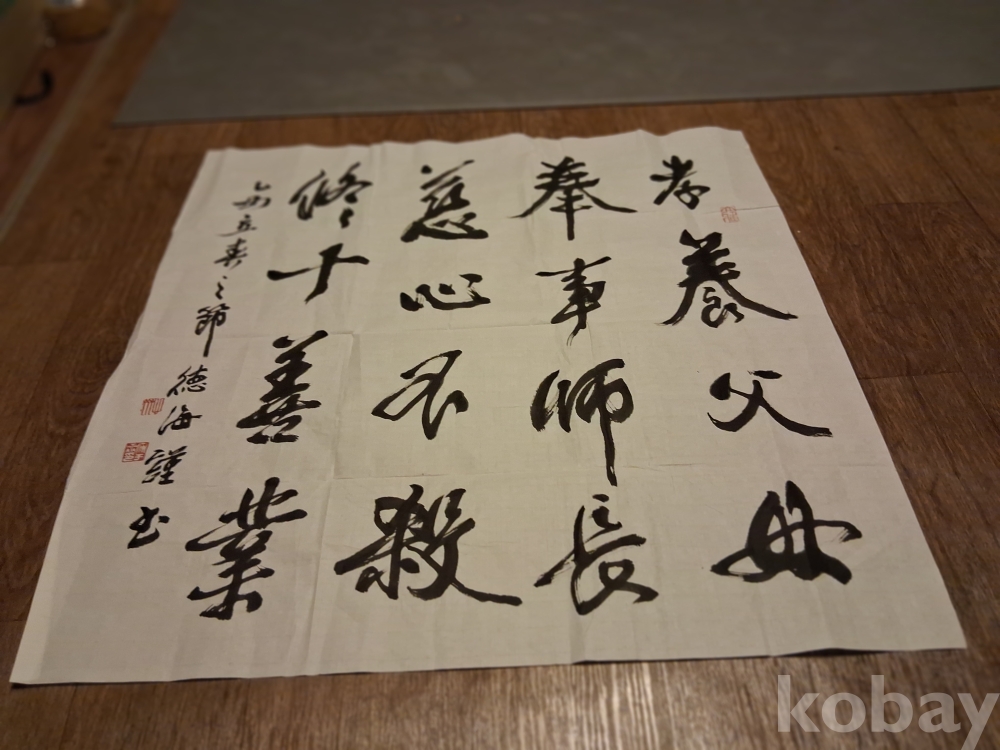 孝養父母
奉事師長
慈心不殺
修十善業
乙卯立春之節
德海謹書
kobay